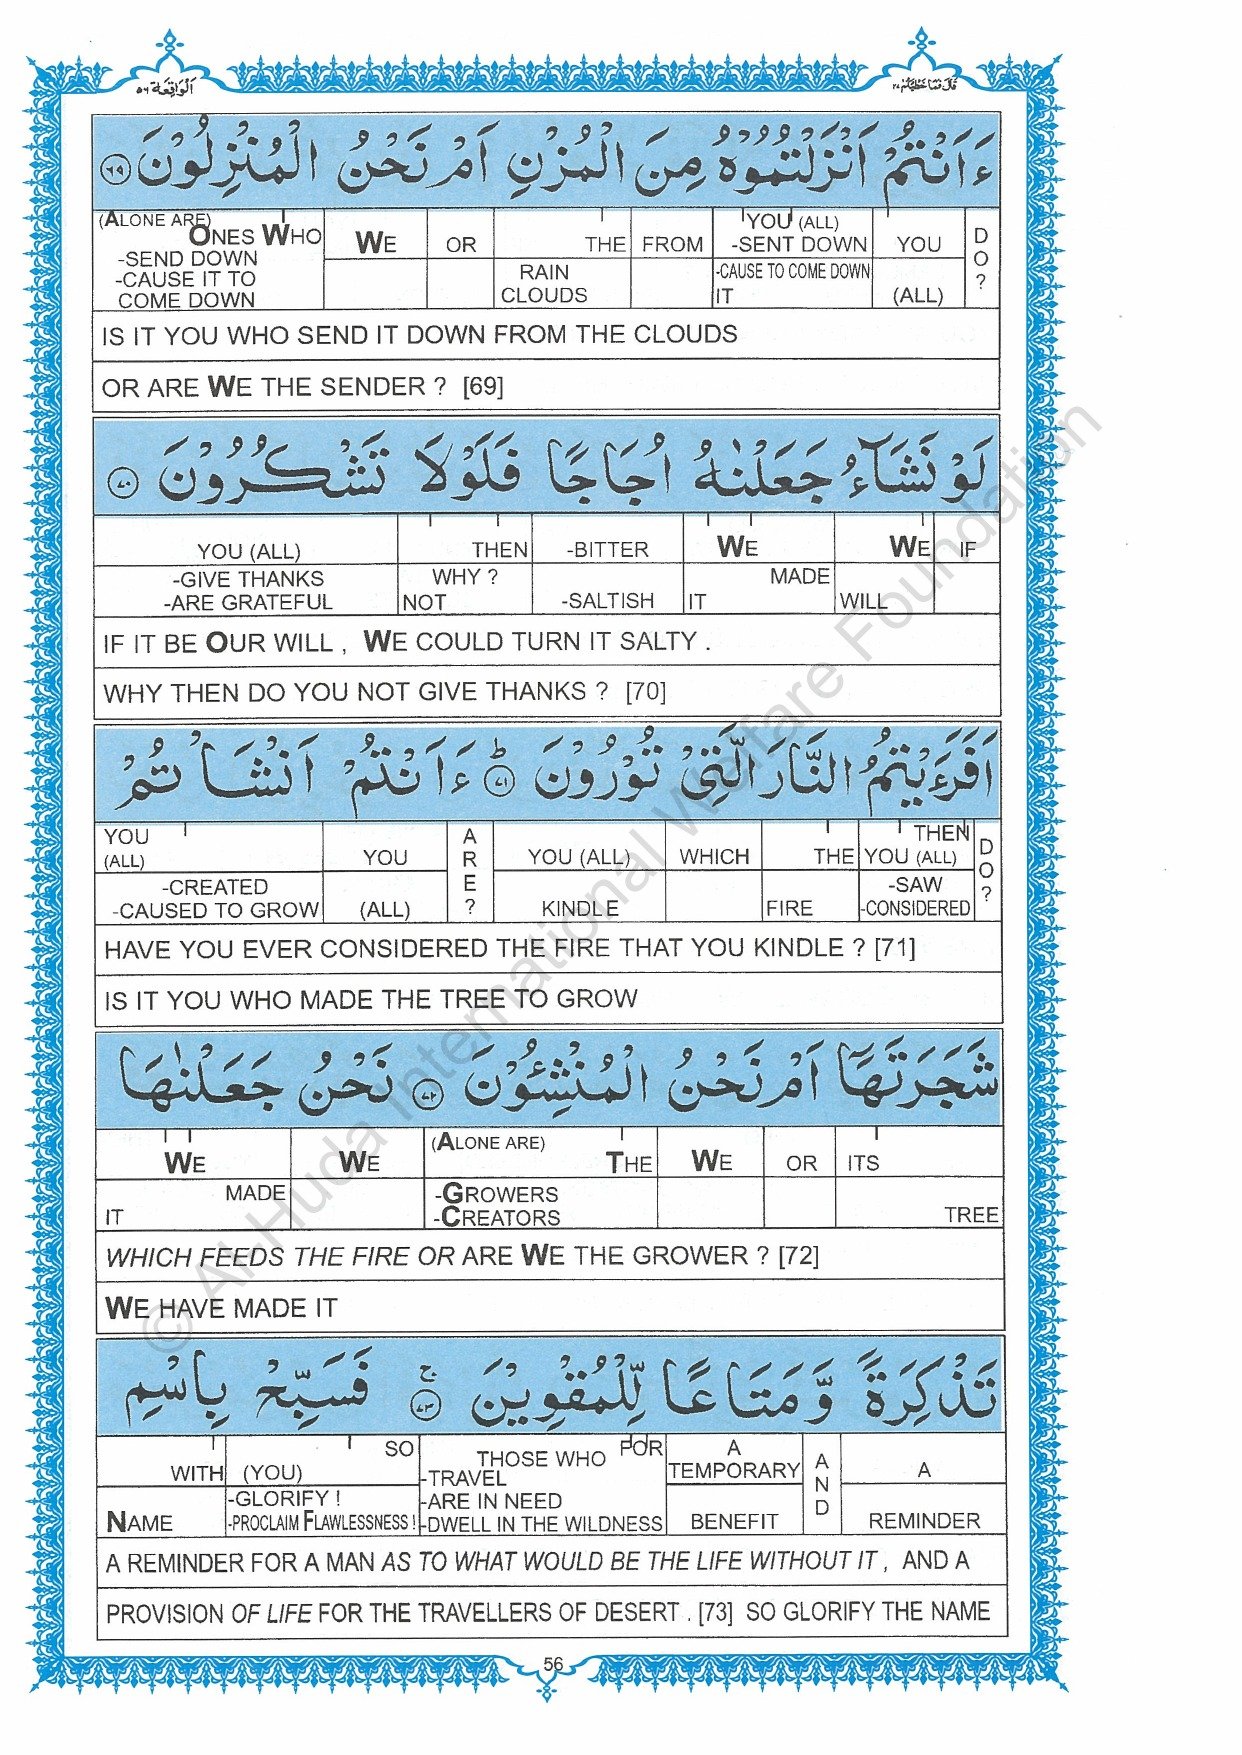 الواقعة ٥٦
قال فما خطبكم ٢٧
ءَاَنْتُمْ اَنْزَلْتُمُوْهُ مِنَ الْمُزْنِ اَمْ نَحْنُ الْمُنْزِلُوْنَ ﴿٦٩﴾
(ALONE ARE) ONES WHO WE OR THE FROM YOU (ALL) -SENT DOWN YOU DO?
-SEND DOWN -CAUSE IT TO COME DOWN RAIN CLOUDS -CAUSE TO COME DOWN IT (ALL)
IS IT YOU WHO SEND IT DOWN FROM THE CLOUDS
OR ARE WE THE SENDER ? [69]
لَوْ نَشَآءُ جَعَلْنٰهُ اُجَاجًا فَلَوْلَا تَشْكُرُوْنَ ﴿٧٠﴾
YOU (ALL) THEN -BITTER WE WE IF
-GIVE THANKS -ARE GRATEFUL WHY ? NOT -SALTISH MADE IT WILL
IF IT BE OUR WILL , WE COULD TURN IT SALTY .
WHY THEN DO YOU NOT GIVE THANKS ? [70]
اَفَرَءَيْتُمُ النَّارَ الَّتِيْ تُوْرُوْنَ ﴿٧١﴾ ط ءَاَنْتُمْ اَنْشَاْتُمْ
YOU (ALL) YOU ARE? YOU (ALL) WHICH THE THEN YOU (ALL) DO?
-CREATED -CAUSED TO GROW (ALL) KINDLE FIRE -SAW -CONSIDERED
HAVE YOU EVER CONSIDERED THE FIRE THAT YOU KINDLE ? [71]
IS IT YOU WHO MADE THE TREE TO GROW
شَجَرَتَهَآ اَمْ نَحْنُ الْمُنْشِئُوْنَ ﴿٧٢﴾ نَحْنُ جَعَلْنٰهَا
WE WE (ALONE ARE) THE WE OR ITS
MADE IT -GROWERS -CREATORS TREE
WHICH FEEDS THE FIRE OR ARE WE THE GROWER ? [72]
WE HAVE MADE IT
تَذْكِرَةً وَّمَتَاعًا لِّلْمُقْوِيْنَ ﴿٧٣﴾ ج فَسَبِّحْ بِاسْمِ
WITH SO (YOU) FOR THOSE WHO A TEMPORARY AND A
NAME -GLORIFY ! -PROCLAIM FLAWLESSNESS ! -TRAVEL -ARE IN NEED -DWELL IN THE WILDNESS BENEFIT REMINDER
A REMINDER FOR A MAN AS TO WHAT WOULD BE THE LIFE WITHOUT IT , AND A
PROVISION OF LIFE FOR THE TRAVELLERS OF DESERT . [73] SO GLORIFY THE NAME
56
© Al-Huda International Welfare Foundation